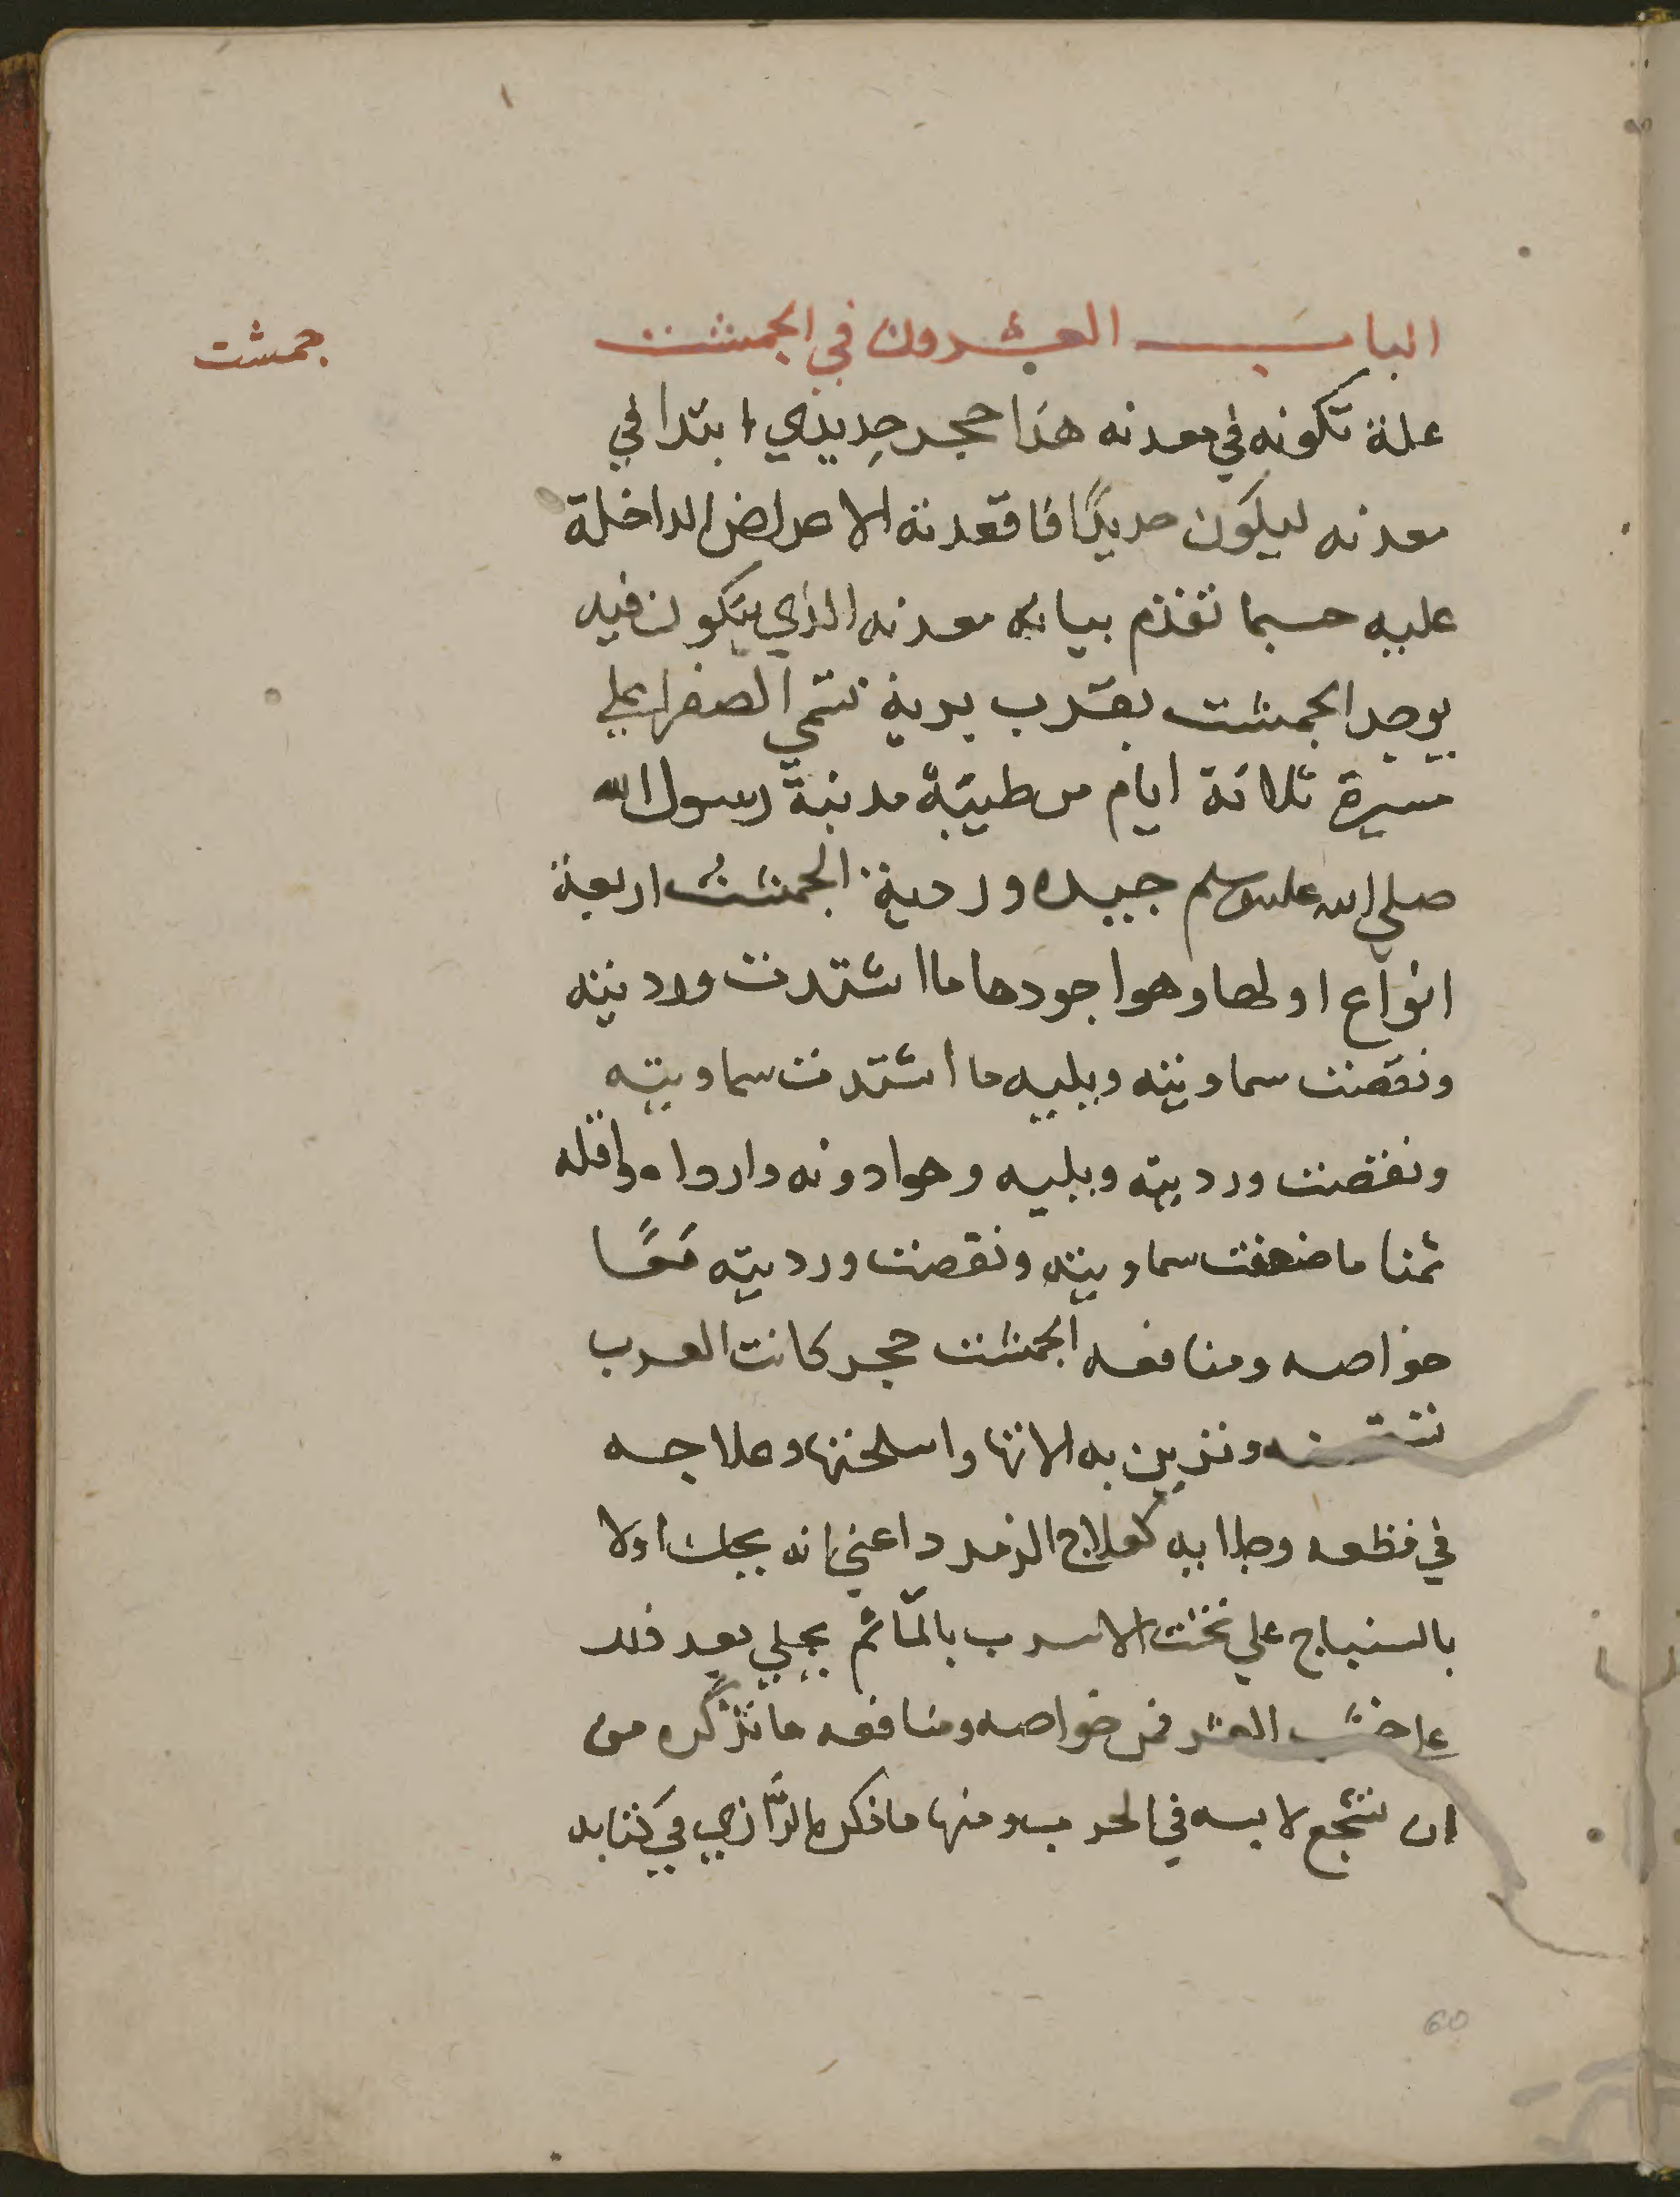 الباب العشرون في الجمشت
جمشت
علة تكونه في معدنه هذا حجر حديدي ابتدا في
معدنه ليكون حديدًا فاقعدته الاعراض الداخلة
عليه حسبما تقدم بيانه معدنه الذي يتكون فيه
يوجد الجمشت بقرب برية تسمي الصفرا علي
مسيرة ثلاثة ايام من طيبة مدينة رسول الله
صلي الله عليه وسلم جيده ورديه الجمشت اربعة
انواع اولها وهو اجودها ما اشتدت ورديته
ونقصت سماويته ويليه ما اشتدت سماويته
ونقصت ورديته ويليه وهو ادونه واردا ه واقله
ثمنا ما ضعفت سماويته ونقصت ورديته معًا
خواصه ومنافعه الجمشت حجر كانت العرب
وتزين به الاتها واسلحتها وعلاجه
في قطعه وجلايه كعلاج الزمرد اعني انه يحك اولا
بالسنباج علي تخت الاسرب بالما ثم يجلي بعد ذلك
علي خشب العشر فمن خواصه ومنافعه ما نذكره من
ان تشجع لابسه في الحرب ومنها ما ذكره الرازي في كتابه
60